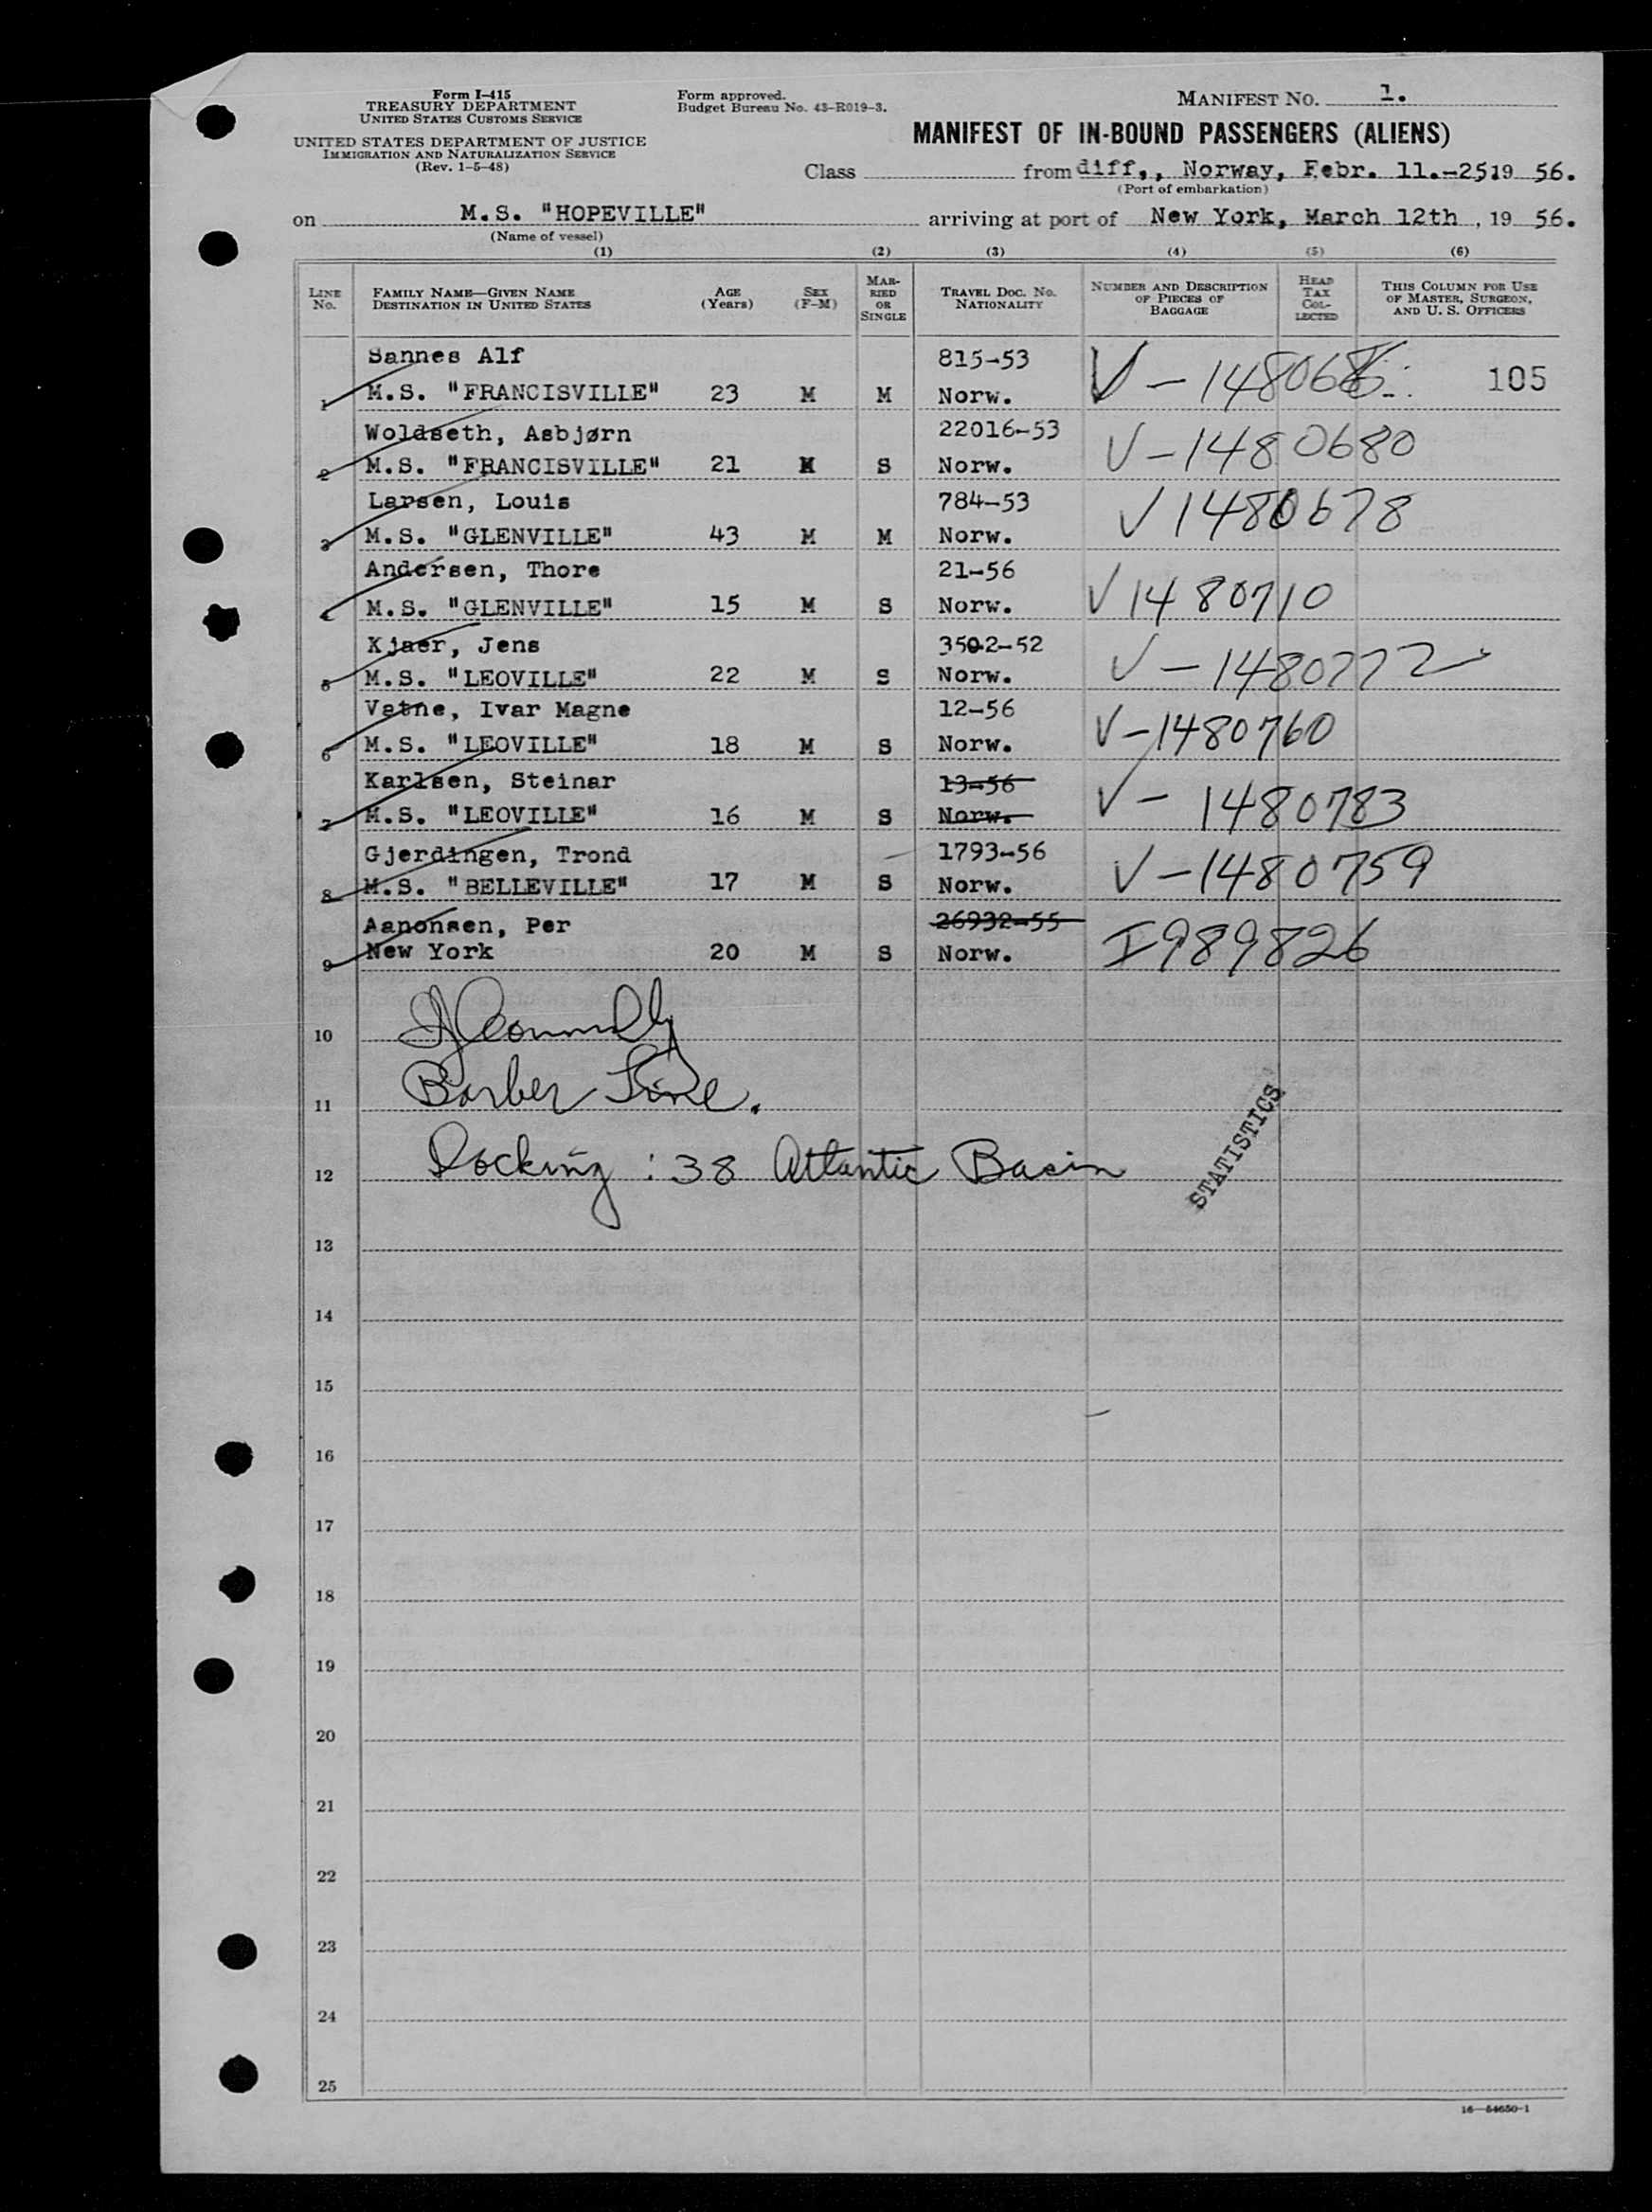 Form I-415
TREASURY DEPARTMENT
UNITED STATES CUSTOMS SERVICE
UNITED STATES DEPARTMENT OF JUSTICE
IMMIGRATION AND NATURALIZATION SERVICE
(Rev. 1-5-48)
Form approved.
Budget Bureau No. 43-R019-3.
MANIFEST NO. 1.
MANIFEST OF IN-BOUND PASSENGERS (ALIENS)
Class from diff,, Norway, Febr. 11.-25.19 56.
(Port of embarkation)
on M.S. "HOPEVILLE" arriving at port of New York, March 12th, 19 56.
(Name of vessel)
(1) (2) (3) (4) (5) (6)
LINE No. FAMILY NAME—GIVEN NAME DESTINATION IN UNITED STATES AGE (Years) SEX (F-M) MARRIED OR SINGLE TRAVEL DOC. NO. NATIONALITY NUMBER AND DESCRIPTION OF PIECES OF BAGGAGE HEAD TAX COLLECTED THIS COLUMN FOR USE OF MASTER, SURGEON, AND U. S. OFFICERS
Sannes Alf 815-53
1 M.S. "FRANCISVILLE" 23 M M Norw. 105
Woldseth, Asbjørn 22016-53 V-1480680
2 M.S. "FRANCISVILLE" 21 M S Norw.
Larsen, Louis 784-53 V1480678
3 M.S. "GLENVILLE" 43 M M Norw.
Andersen, Thore 21-56 V1480710
4 M.S. "GLENVILLE" 15 M S Norw.
Kjaer, Jens 3502-52 V-1480772
5 M.S. "LEOVILLE" 22 M S Norw.
Vatne, Ivar Magne 12-56 V-1480760
6 M.S. "LEOVILLE" 18 M S Norw.
Karlsen, Steinar 13-56 V-1480783
7 M.S. "LEOVILLE" 16 M S Norw.
Gjerdingen, Trond 1793-56 V-1480759
8 M.S. "BELLEVILLE" 17 M S Norw.
Aanonsen, Per 26932-55 I989826
9 New York 20 M S Norw.
10 Connolly
11 Barber Line.
12 Docking : 38 Atlantic Basin
STATISTICS
13
14
15
16
17
18
19
20
21
22
23
24
25
16—54650-1